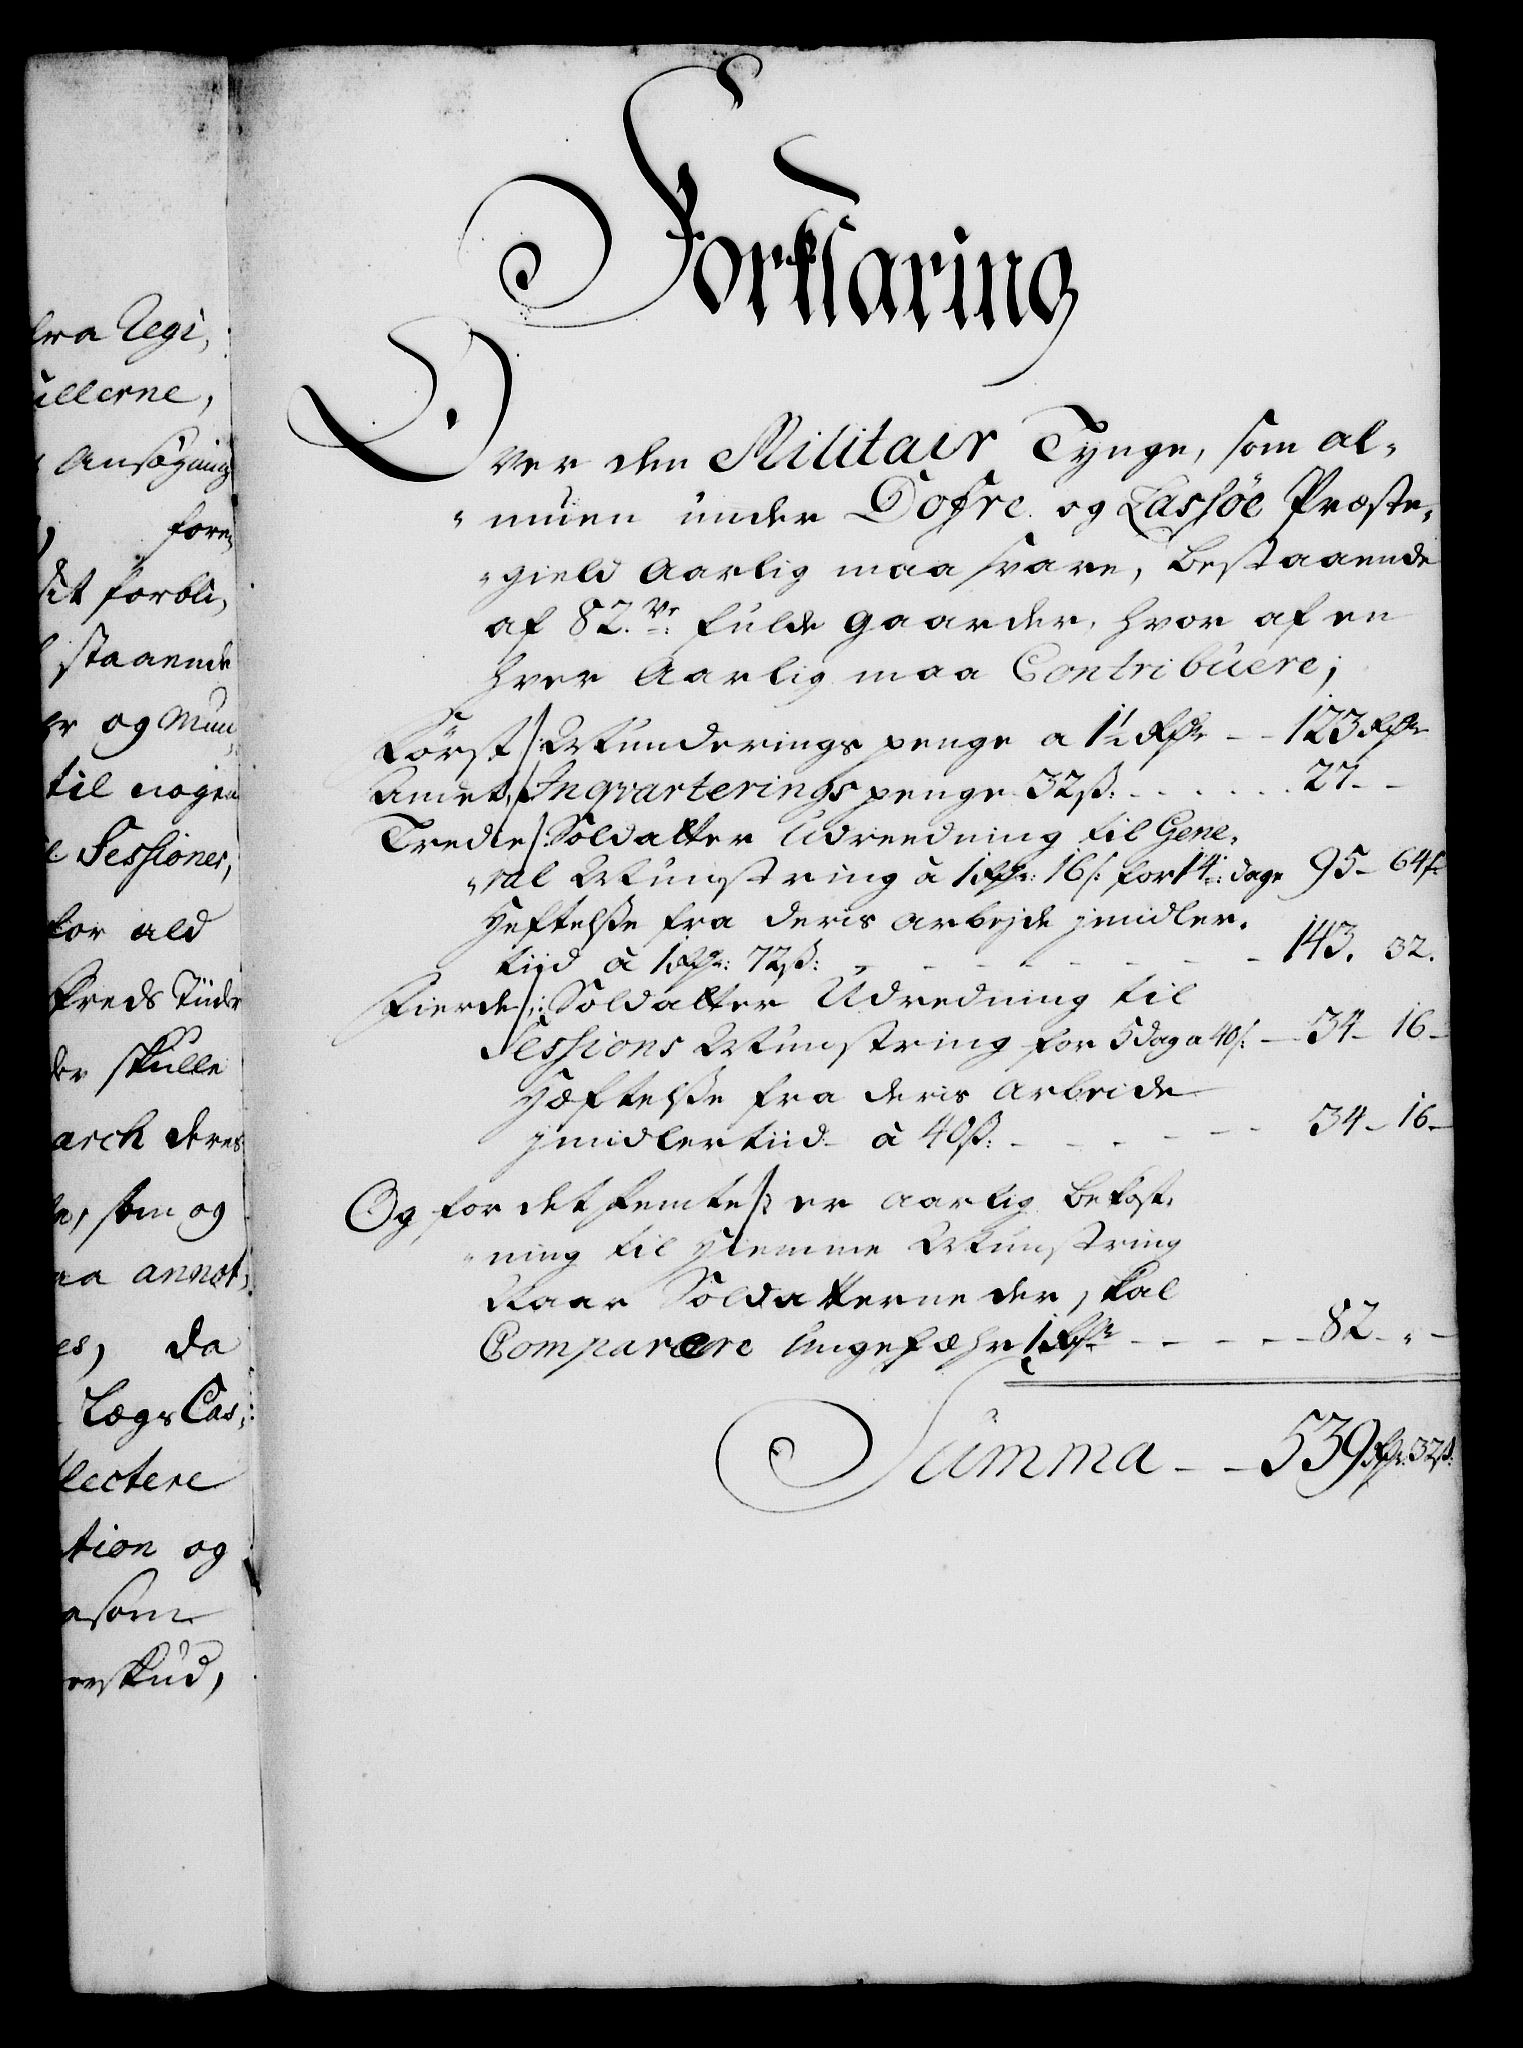 lra Regi,
ullerne,
Ansøgning
fore,
dit forbli,
staaende
er og Mun,
til nogen
e Sessioner,
for ald
freds Tiider
der skulle
arch deres
som og
aa annot,
es, da
Lægs Cas,
llectere
tion og
som
orskud,
Forklaring
Over den Militair Tynge, som al,
„muen under Dofre og Lassøe Præste,
„gield Aarlig maa svare, bestaaende
af 82. Ve: fulde gaarder, hvor af en
hver Aarlig maa Contribuere;
Først /: Munderings penge a 1½ Rdr – – 123 Rdr
Andet /: Inqvarterings penge 32ß: - - - - - - 27 - -
Tredie /: Soldatter Udreedning til Gene,
„ral Munstring à 1 Rdr: 16ß: for 14: dage 95 – 64ß
Heftelsse fra deris arbejde jmidler,
tiid à 1 Rdr: 72ß: - - - - - - - - 143. 32.
Fierde /: Soldatter Udredning til
Sessions Munstring for 5 dag a 40ß: — 34 – 16 –
Hæftelsse fra deris Arbeide
jmidlertiid à 40ß: - - - - - - 34 – 16 –
Og for det femte /: er Aarlig bekost,
„ning til Hiemme Munstring
Naar Soldatterne der skal
Comparere Ungefæhr 1 Rdr - - - - - 82 - „ -
Summa – – 539 Rdr: 32ß: